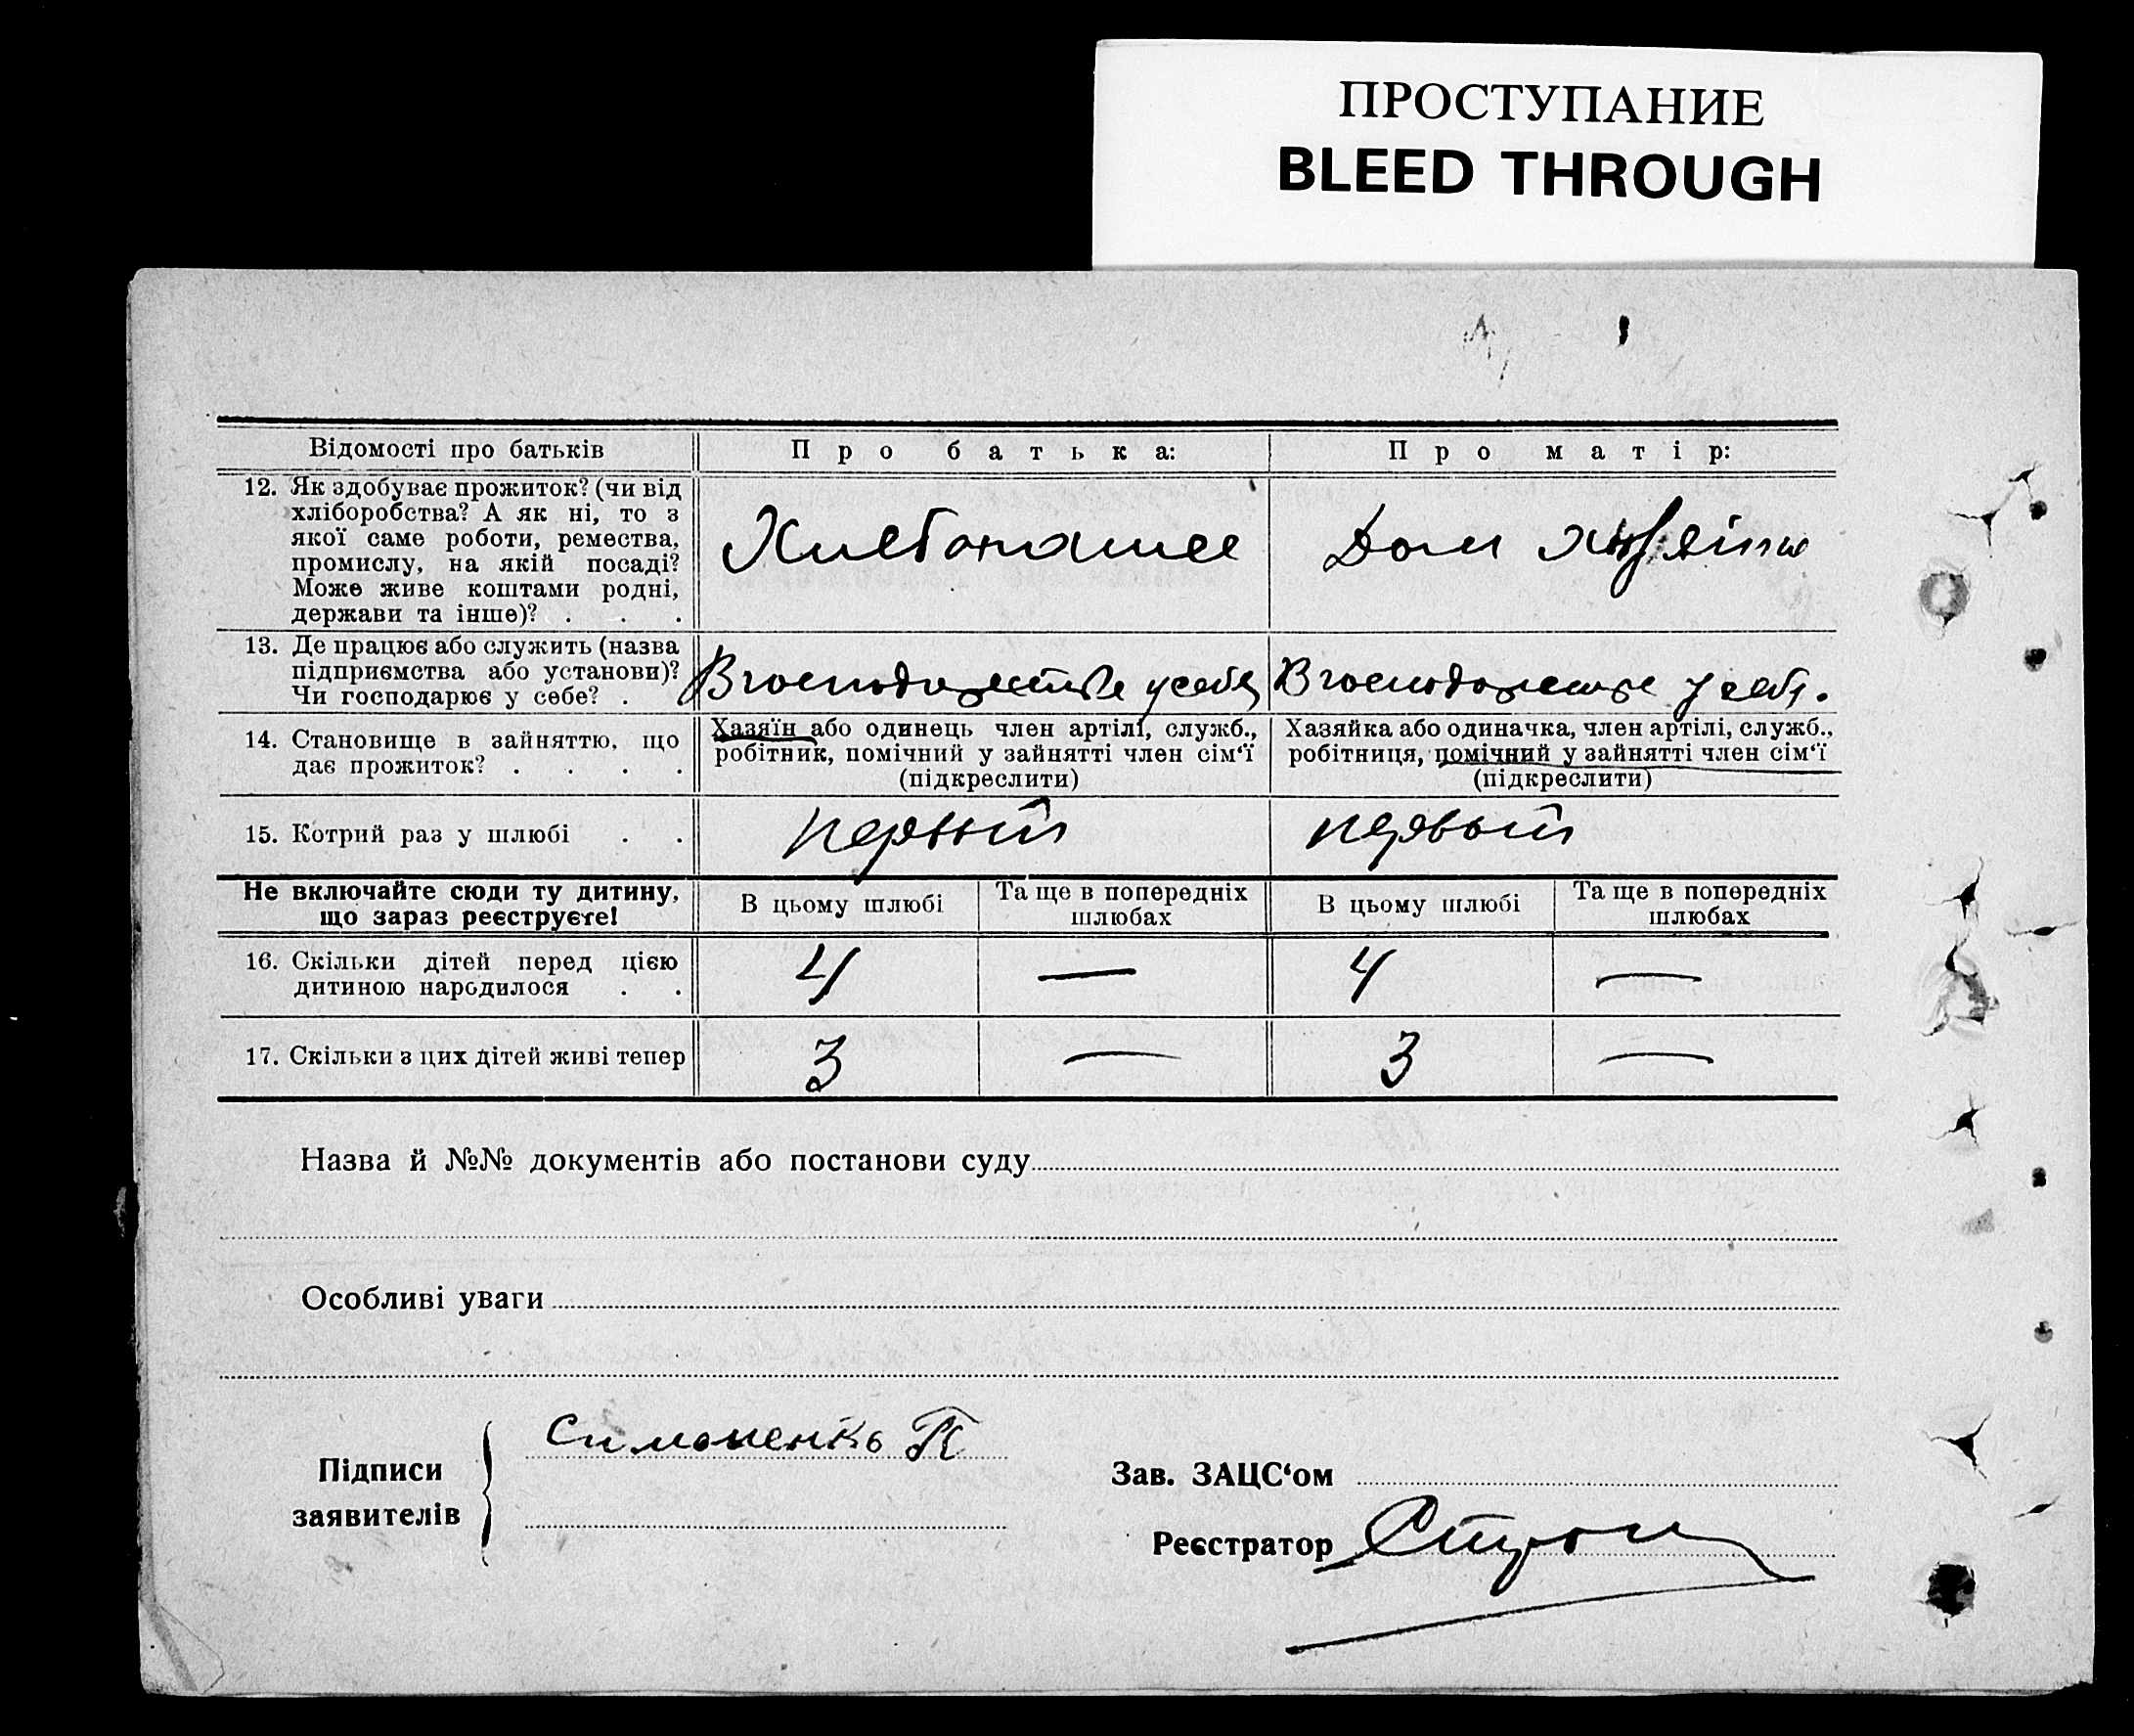 ПРОСТУПАНИЕ
BLEED THROUGH
Відомості про батьків
Про батька:
Про матір:
12. Як здобуває прожиток? (чи від
хліборобства? А як ні, то з
якої саме роботи, ремества,
промислу, на якій посаді?
Може живе коштами родні,
держави та інше)? . . .
Дом
13. Де працює або служить (назва
підприємства або установи)?
Чи господарює у себе? .
14. Становище в зайняттю, що
дає прожиток? . . . .
Хазяїн або одинець член артілі, служб.,
робітник, помічний у зайнятті член сім‘ї
(підкреслити)
Хазяйка або одиначка, член артілі, служб.,
робітниця, помічний у зайнятті член сім‘ї
(підкреслити)
15. Котрий раз у шлюбі . .
первый
первый
Не включайте сюди ту дитину,
що зараз реєструєте!
В цьому шлюбі
Та ще в попередніх
шлюбах
В цьому шлюбі
Та ще в попередніх
шлюбах
16. Скільки дітей перед цією
дитиною народилося . .
4
—
4
—
17. Скільки з цих дітей живі тепер
3
—
3
—
Назва й №№ документів або постанови суду
Особливі уваги
Підписи
заявителів
Симоненко
Зав. ЗАЦС‘ом
Реєстратор